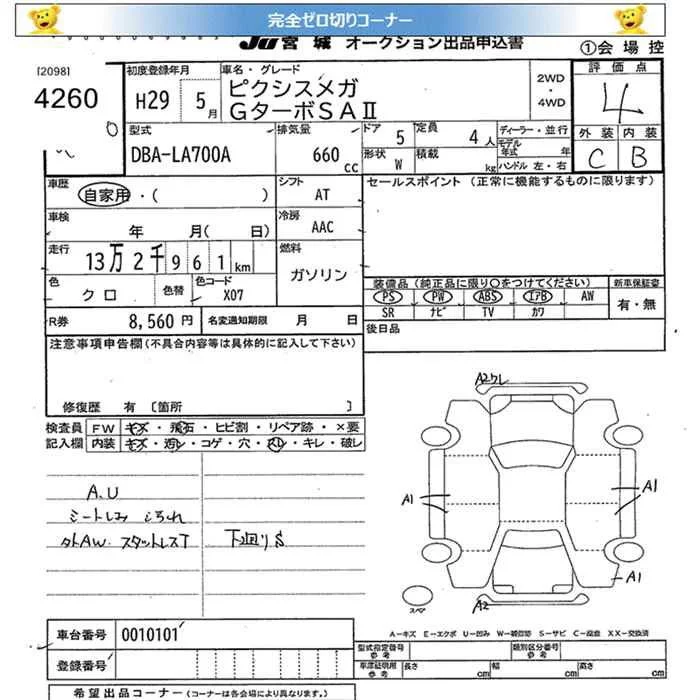 完全ゼロ切りコーナー
JU宮城 オークション出品申込書
①会場控
[2098]
4260
初度登録年月
H29 5月
車名・グレード
ピクシスメガ
GターボSAⅡ
2WD
・
4WD
評価点
4
外装 内装
C B
型式
DBA-LA700A
排気量
660 cc
ドア 5
定員 4人
形状 W
積載 kg
ディーラー・並行
モデル年式 年
ハンドル 左・右
車歴
自家用・( )
シフト
AT
セールスポイント (正常に機能するものに限ります)
車検
年 月( 日)
冷房
AAC
走行
13万2千961km
燃料
ガソリン
色
クロ
色替
色コード
X07
装備品(純正品に限り○をつけてください)
PS PW ABS エアB AW
SR ナビ TV カワ
新車保証書
有・無
R券 8,560円
名変通知期限 月 日
後日品
注意事項申告欄(不具合内容等は具体的に記入して下さい)
修復歴 有 〔箇所 〕
検査員記入欄
FW キズ・飛石・ヒビ割・リペア跡・×要
内装 キズ・汚レ・コゲ・穴・スレ・キレ・破レ
A.U
シートしみ
タトAW、スタットレスT
下廻りS
A2ワレ
A1
A1
A1
A2
スペア
A-キズ E-エクボ U-凹み W-補修跡 S-サビ C-腐食 XX-交換済
車台番号 0010101
登録番号
型式指定番号
参考
類別区分番号
参考
車庫証明用
参考
長さ cm 幅 cm 高さ cm
希望出品コーナー(コーナーは各会場により異なります。)